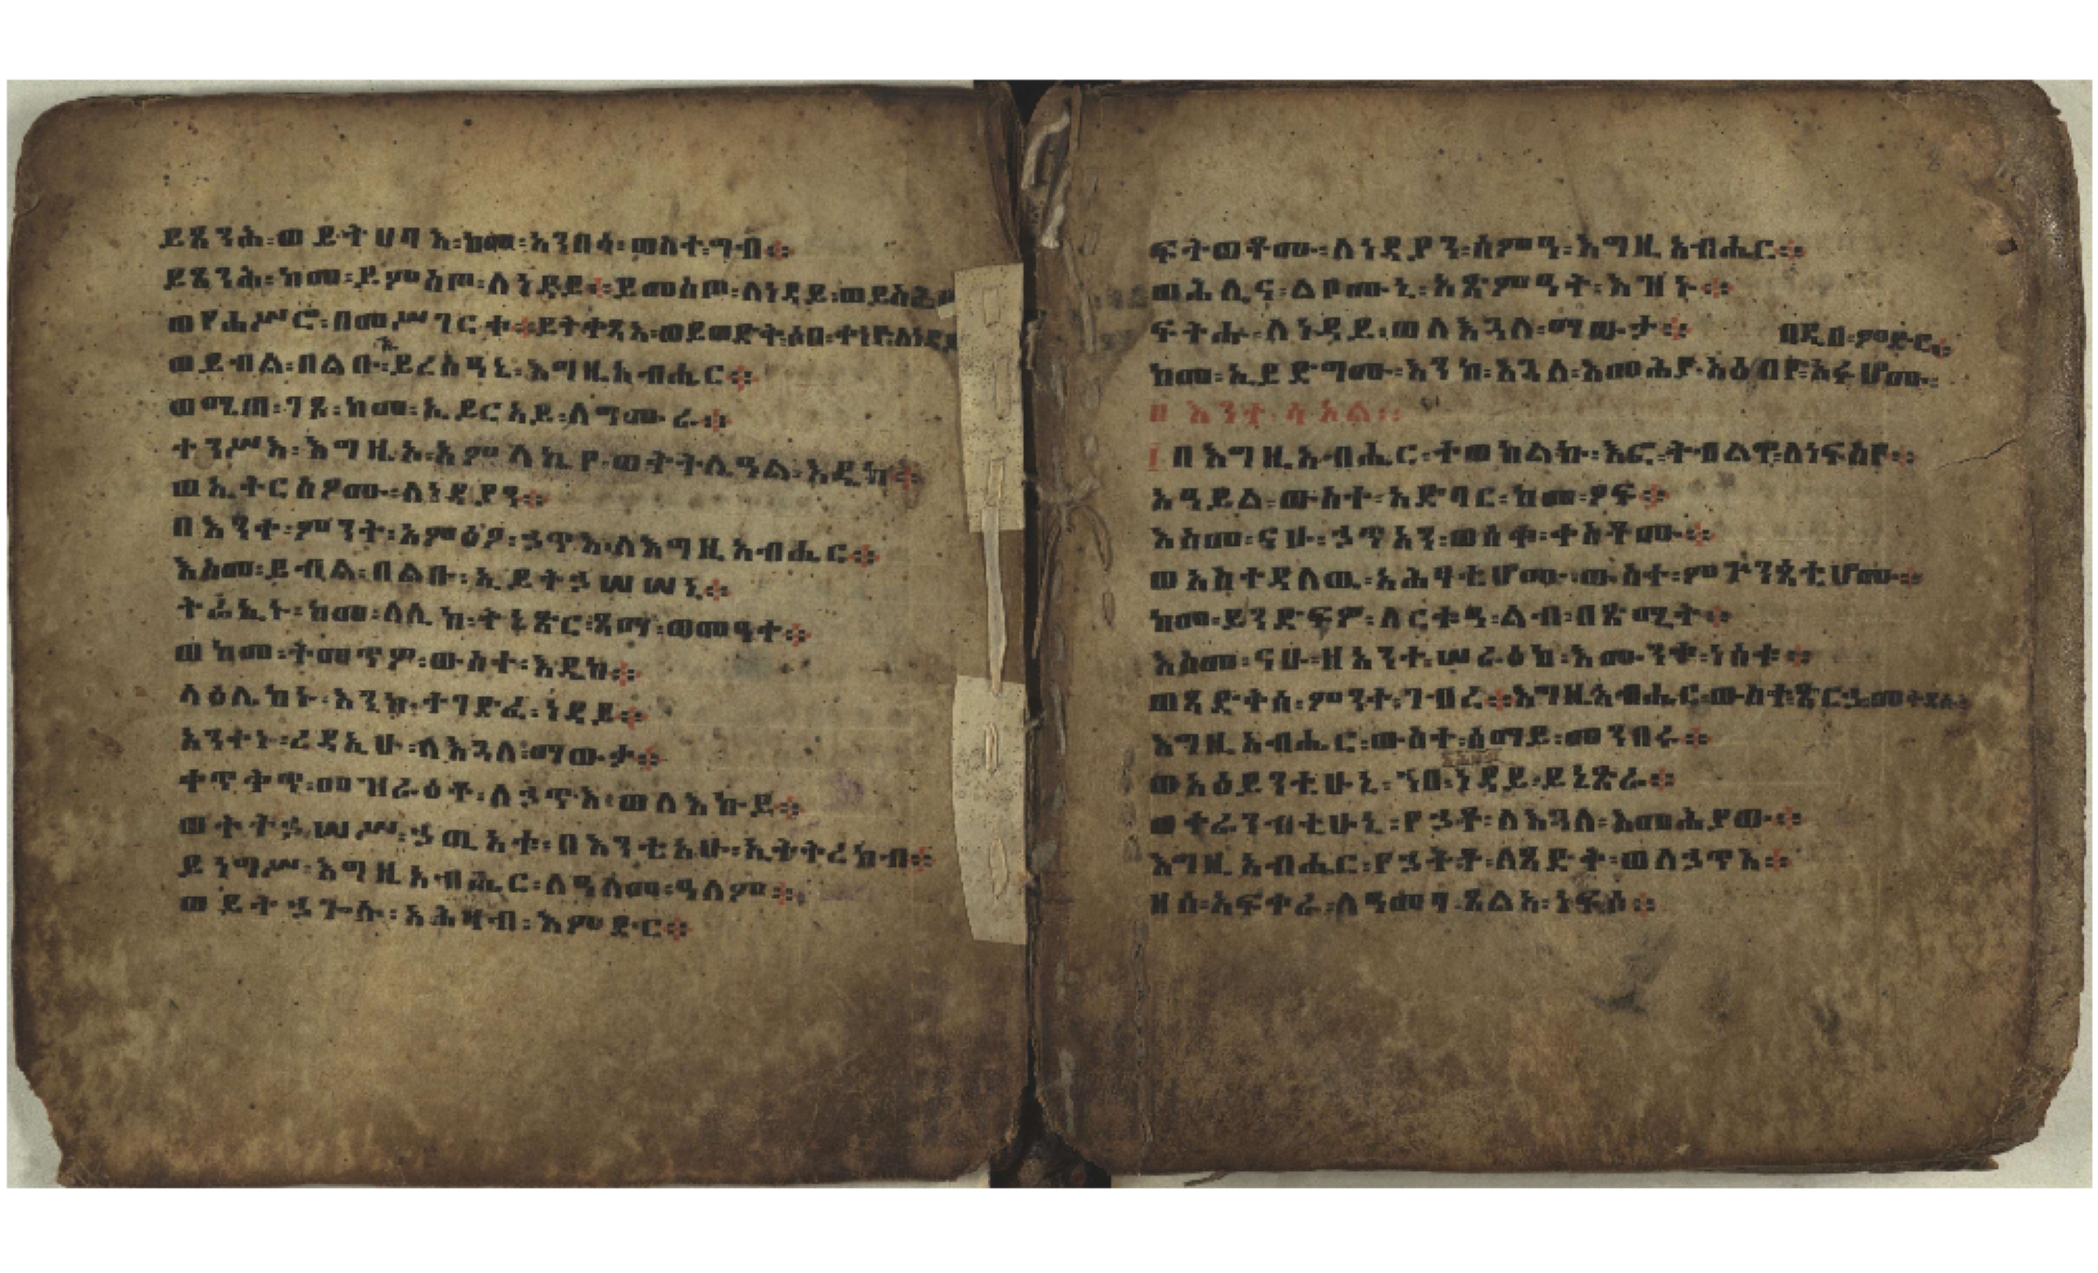 ይጼንሕ፡ወይትሀባእ፡ከመ፡አንበሳ፡ውስተ፡ግብ።
ይጼንሕ፡ከመ፡ይምስጦ፡ለነዳይ።ይመስጦ፡ለነዳይ፡ወይስሕቦ
ወየሐሥሮ፡በመሥገርቱ።ይትቀጻእ፡ወይወድቅ፡ሶበ፡ቀነዮ፡ለነዳይ
ወይብል፡በልቡ፡ይረስዓኒ፡እግዚአብሔር።
ወሜጠ፡ገጾ፡ከመ፡ኢይርአይ፡ለግሙራ።
ተንሥእ፡እግዚኦ፡አምላኪየ፡ወትትሌዓል፡እዴከ።
ወኢትርስዖሙ፡ለነዳያን።
በእንተ፡ምንት፡አምዕዖ፡ኃጥእ፡ለእግዚአብሔር።
እስመ፡ይብል፡በልቡ፡ኢይትኃሠሠኒ።
ትሬኢኑ፡ከመ፡ለሊከ፡ትኔጽር፡ጻማ፡ወመዓተ።
ወከመ፡ትመጥዎ፡ውስተ፡እዴከ።
ላዕሌከኑ፡እንከ፡ተገድፈ፡ነዳይ።
አንተኑ፡ረዳኢሁ፡ለእጓለ፡ማውታ።
ቀጥቅጥ፡መዝራዕቶ፡ለኃጥእ፡ወለእኩይ።
ወትትኃሠሥ፡ኃጢአቱ፡በእንቲአሁ፡ኢትትረከብ።
ይነግሥ፡እግዚአብሔር፡ለዓለመ፡ዓለም።
ወይትኃጐሉ፡አሕዛብ፡እምድር።
ፍትወቶሙ፡ለነዳያን፡ሰምዓ፡እግዚአብሔር።
ወሕሊና፡ልቦሙኒ፡አጽምዓት፡እዝኑ።
ፍትሑ፡ለነዳይ፡ወለእጓለ፡ማውታ። በዲበ፡ምድር።
ከመ፡ኢይድግሙ፡እንከ፡እጓለ፡እመሕያው፡አዕብዮ፡አፉሆሙ።
ዘእንተ፡ሳአል።
፲በእግዚአብሔር፡ተወከልኩ፡እፎ፡ትብልዋ፡ለነፍስየ።
አዓይል፡ውስተ፡አድባር፡ከመ፡ዖፍ።
እስመ፡ናሁ፡ኃጥአን፡ወሰቁ፡ቀስቶሙ።
ወአስተዳለዉ፡አሕፃቲሆሙ፡ውስተ፡ምጕንጳቲሆሙ።
ከመ፡ይንድፍዎ፡ለርቱዓ፡ልብ፡በጽሚት።
እስመ፡ናሁ፡ዘአንተ፡ሠራዕከ፡እሙንቱ፡ነሰቱ።
ወጻድቅሰ፡ምንተ፡ገብረ።እግዚአብሔር፡ውስተ፡ጽርኃ፡መቅደሱ።
እግዚአብሔር፡ውስተ፡ሰማይ፡መንበሩ።
ወአዕይንቲሁኒ፡ኀበ፡ነዳይ፡ይኔጽራ።
ወቀራንብቲሁኒ፡የኃቶ፡ለእጓለ፡እመሕያው።
እግዚአብሔር፡የኃትቶ፡ለጻድቅ፡ወለኃጥእ።
ዘሰ፡አፍቀራ፡ለዓመፃ፡ጸልአ፡ነፍሶ።